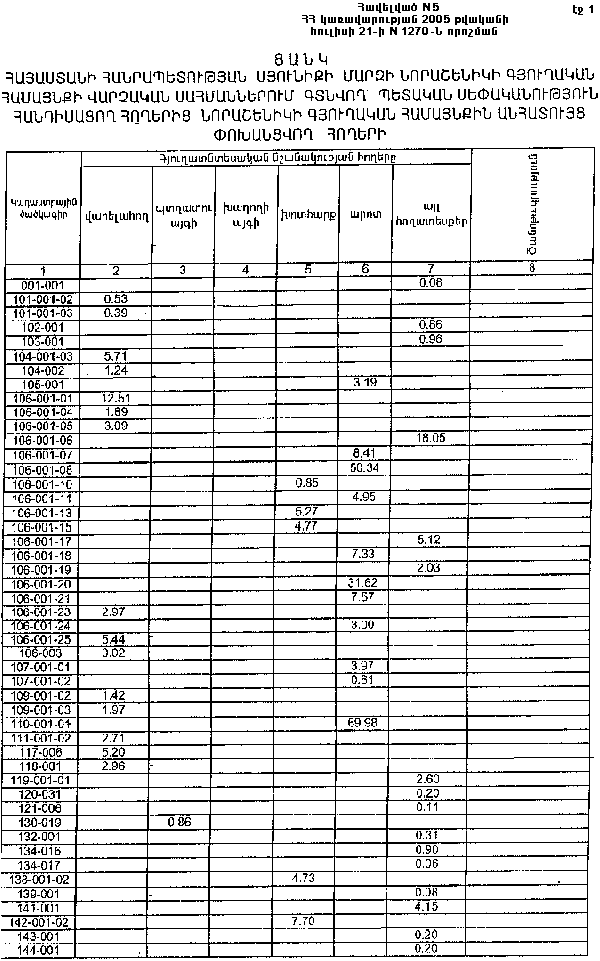 Հավելված N5
էջ 1
ՀՀ կառավարության 2005 թվականի
հուլիսի 21-ի N 1270-Ն որոշման
ՑԱՆԿ
ՀԱՅԱՍՏԱՆԻ ՀԱՆՐԱՊԵՏՈՒԹՅԱՆ ՍՅՈՒՆԻՔԻ ՄԱՐԶԻ ՆՈՐԱՇԵՆԻԿԻ ԳՅՈՒՂԱԿԱՆ
ՀԱՄԱՅՆՔԻ ՎԱՐՉԱԿԱՆ ՍԱՀՄԱՆՆԵՐՈՒՄ ԳՏՆՎՈՂ ՊԵՏԱԿԱՆ ՍԵՓԱԿԱՆՈՒԹՅՈՒՆ
ՀԱՆԴԻՍԱՑՈՂ ՀՈՂԵՐԻՑ ՆՈՐԱՇԵՆԻԿԻ ԳՅՈՒՂԱԿԱՆ ՀԱՄԱՅՆՔԻՆ ԱՆՀԱՏՈՒՅՑ
ՓՈԽԱՆՑՎՈՂ ՀՈՂԵՐԻ
Գյուղատնտեսական նշանակության հողերը
Կադաստրային ծածկագիր վարելահող պտղատու այգի խաղողի այգի խոտհարք արոտ այլ հողատեսքեր
1 2 3 4 5 6 7 8
001-001 0.06
101-001-02 0.53
101-001-03 0.39
102-001 0.66
103-001 0.96
104-001-03 5.71
104-002 1.24
105-001 3.19
106-001-01 12.51
106-001-04 1.89
106-001-05 3.09
106-001-06 18.05
106-001-07 8.41
106-001-08 50.34
106-001-10 0.85
106-001-11 4.95
106-001-13 5.27
106-001-15 4.77
106-001-17 5.12
106-001-18 7.33
106-001-19 2.03
106-001-20 31.62
106-001-21 7.67
106-001-23 2.97
106-001-24 3.00
106-001-25 5.44
106-003 3.02
107-001-01 3.97
107-001-02 0.81
109-001-02 1.42
109-001-03 1.97
110-001-01 69.98
111-001-02 2.71
117-006 5.20
118-001 2.96
119-001-01 2.60
120-031 0.20
121-006 0.11
130-019 0.86
132-001 0.31
134-016 0.90
134-017 0.06
138-001-02 4.73
139-001 0.08
141-001 4.15
142-001-02 7.70
143-001 0.20
144-001 0.20